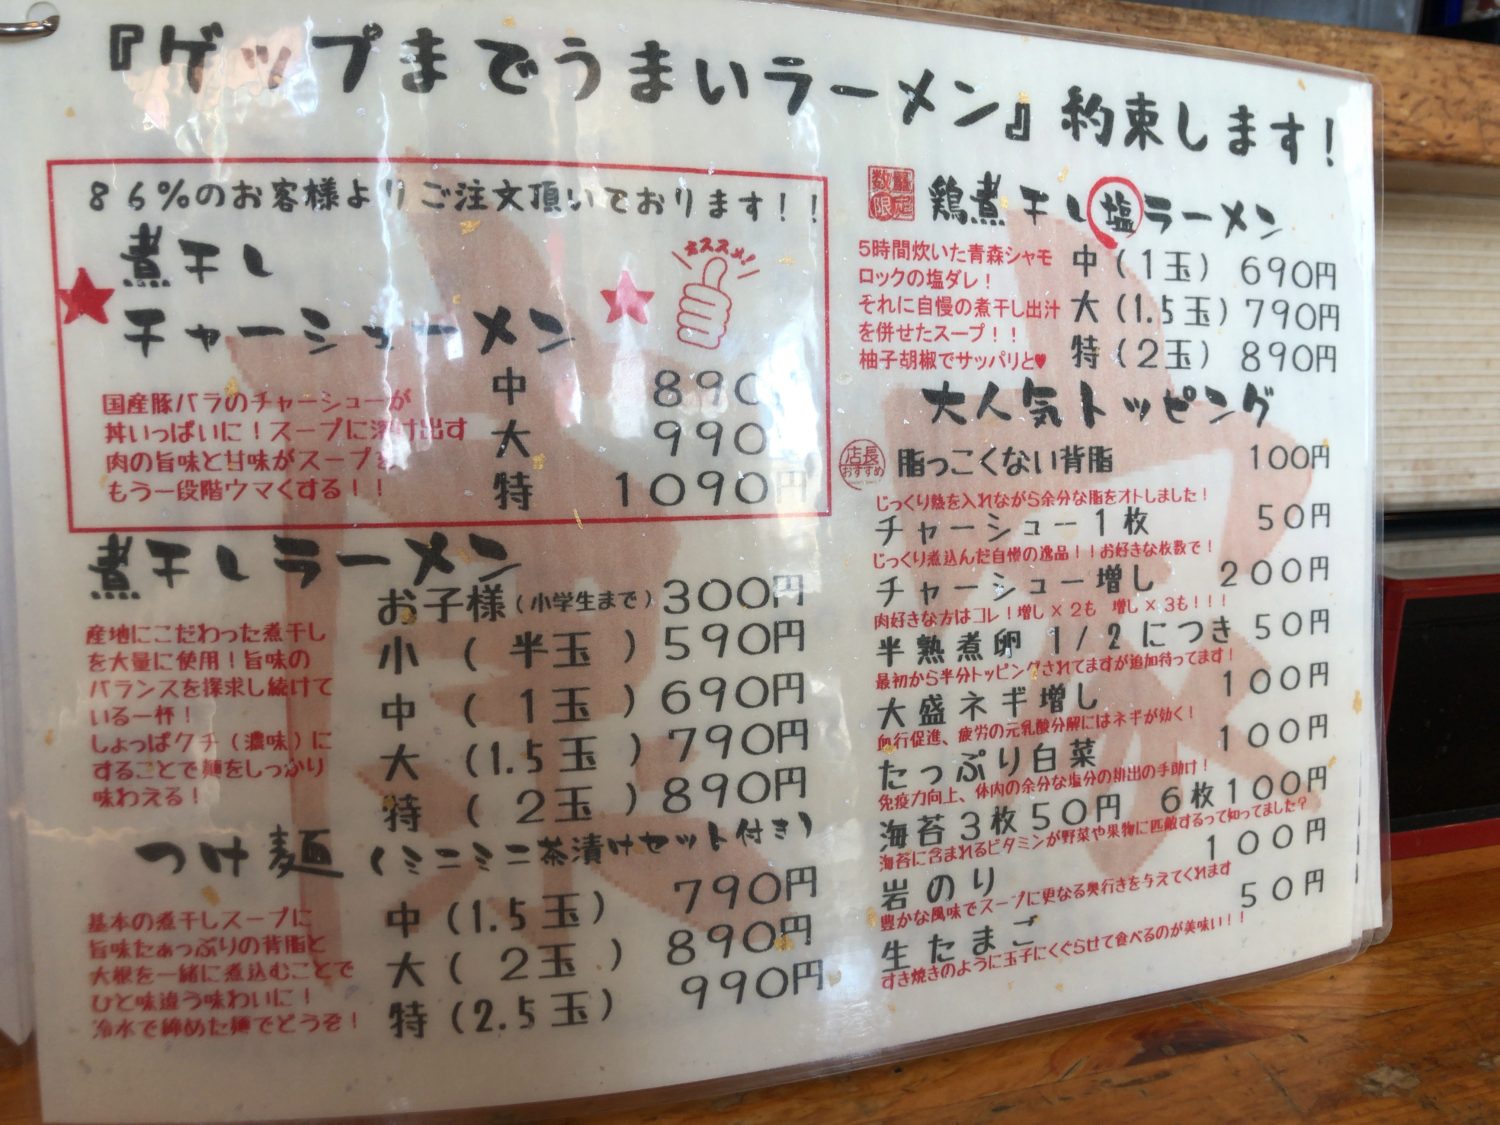 『ゲップまでうまいラーメン』約束します！
86％のお客様よりご注文頂いております！！
煮干し
チャーシューメン
オススメ！
国産豚バラのチャーシューが
丼いっぱいに！スープに溶け出す
肉の旨味と甘味がスープを
もう一段階ウマくする！！
中 890
大 990
特 1090円
煮干しラーメン
産地にこだわった煮干し
を大量に使用！旨味の
バランスを探求し続けて
いる一杯！
しょっぱクチ（濃味）に
することで麺をしっかり
味わえる！
お子様（小学生まで）300円
小（半玉）590円
中（1玉）690円
大（1.5玉）790円
特（2玉）890円
つけ麺（ミニミニ茶漬けセット付き）
基本の煮干しスープに
旨味たぁっぷりの背脂と
大根を一緒に煮込むことで
ひと味違う味わいに！
冷水で締めた麺でどうぞ！
中（1.5玉）790円
大（2玉）890円
特（2.5玉）990円
数量限定
鶏煮干し塩ラーメン
5時間炊いた青森シャモ
ロックの塩ダレ！
それに自慢の煮干し出汁
を併せたスープ！！
柚子胡椒でサッパリと♥
中（1玉）690円
大（1.5玉）790円
特（2玉）890円
大人気トッピング
店長おすすめ
脂っこくない背脂 100円
じっくり熱を入れながら余分な脂をオトしました！
チャーシュー1枚 50円
じっくり煮込んだ自慢の逸品！！お好きな枚数で！
チャーシュー増し 200円
肉好きな方はコレ！増し×2も 増し×3も！！！
半熟煮卵 1/2につき 50円
最初から半分トッピングされてますが追加待ってます！
大盛ネギ増し 100円
血行促進、疲労の元乳酸分解にはネギが効く！
たっぷり白菜 100円
免疫力向上、体内の余分な塩分の排出の手助け！
海苔3枚50円 6枚100円
海苔に含まれるビタミンが野菜や果物に匹敵するって知ってました？
岩のり 100円
豊かな風味でスープに更なる奥行きを与えてくれます
生たまご 50円
すき焼きのように玉子にくぐらせて食べるのが美味い！！